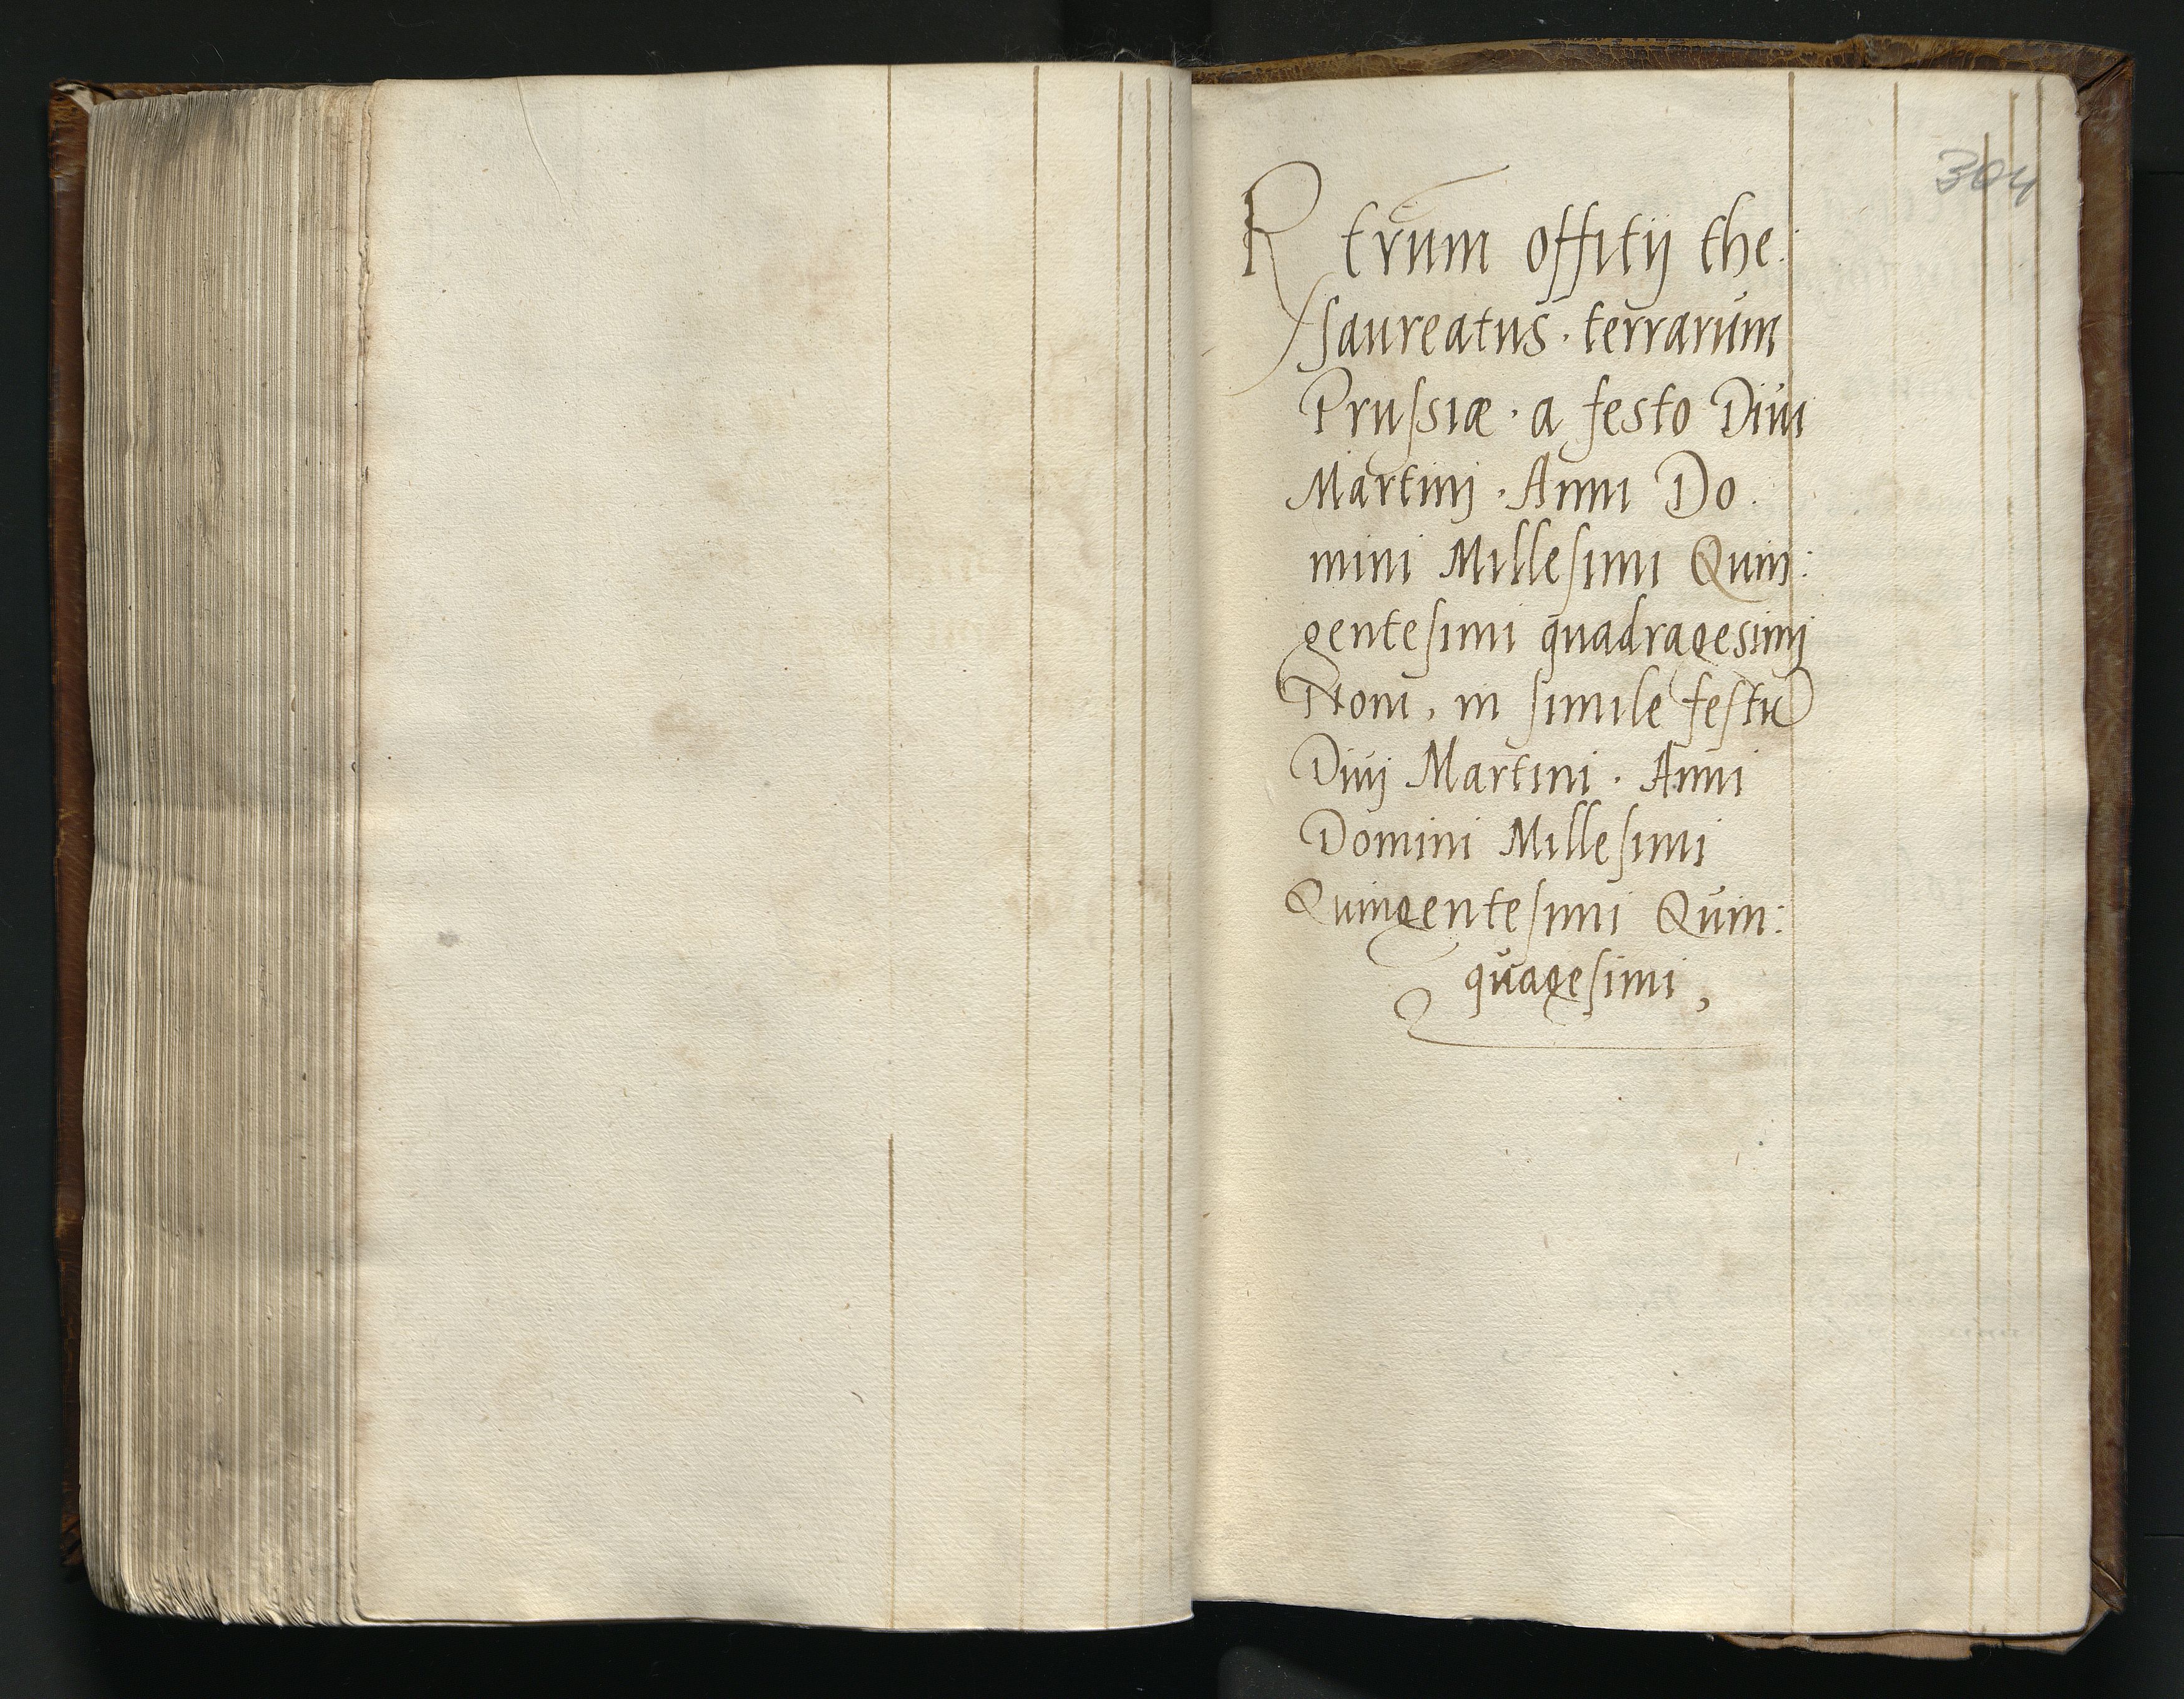 304
Rtrum offitij the:
saureatus · terrarum
Prussiæ · a festo Diui
Martinj · Anni Do.
mini Millesimi Quin:
gentesimi quadragesimj
Noni, in simile festu
Diuj Martini · Anni
Domini Millesimi
Quingentesimi Quin:
quagesimi,